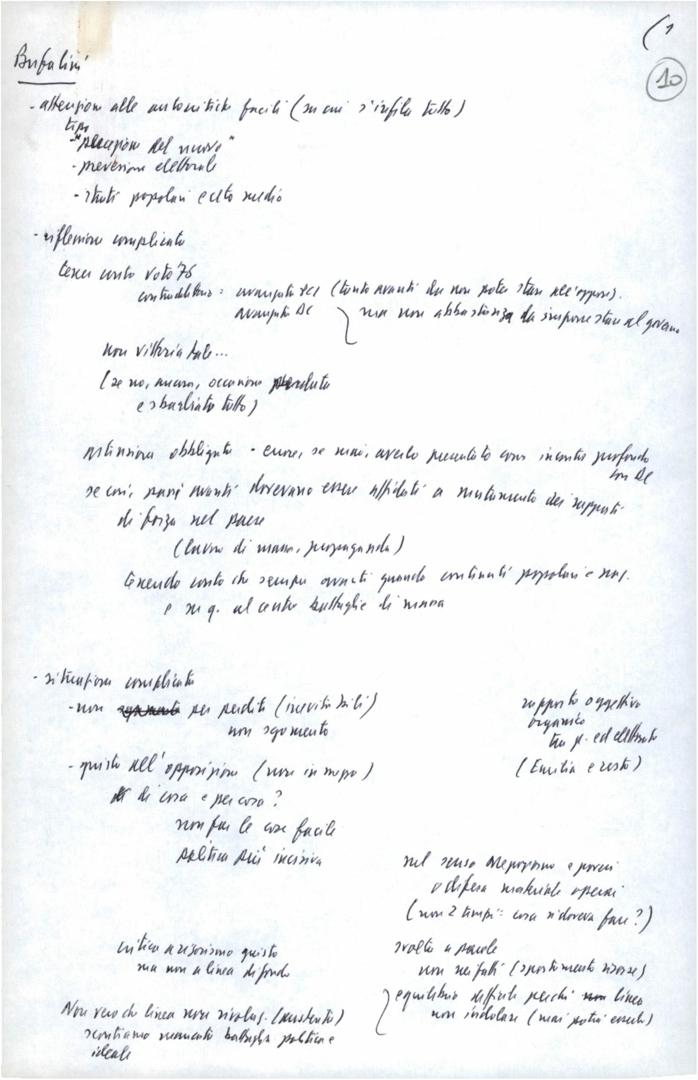 (1
10
Bufalini
- attenzione alle autocritiche facili (su cui s'infila tutto)
tipo
- "percezione del nuovo"
- previsione elettorale
- strati popolari e ceto medio
- riflessione complicata
tener conto voto 76
contraddittorio = avanzata PCI (tanto avanti da non poter stare all'oppos).
avanzata DC
ma non abbastanza da imporre stare al governo
non vittoria tale...
(se no, ancora, occasione perduta
e sbagliato tutto)
astensione obbligata - errore, se mai, averlo presentato come incontro profondo
con DC
se così, passi avanti dovevano essere affidati a mutamento dei rapporti
di forza nel paese
(lavoro di massa, propaganda)
tenendo conto che sempre avanti quando continuati popolari e naz.
e su q. al centro battaglie di massa
- situazione complicata
- non per perdita (inevitabili)
non sgomento
- giusto all'opposizione (non in mezzo)
di cosa e per cosa?
non far le cose facile
politica più incisiva
rapporto oggettivo
organico
tra p. ed elettorato
(Emilia e resto)
nel senso Mezzogiorno e poveri
o difesa materiale operai
(non 2 tempi: cosa si doveva fare?)
critica a giusto
ma non a linea di fondo
svolta a parole
non nei fatti (spostamento risorse)
equilibrio difficile perché linea
non indolore (mai potrà esserlo)
Non vero che linea non rivoluz.
scontiamo mancanti battaglia politica e
ideale